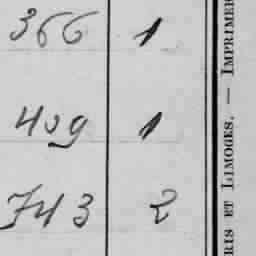 366 1
409 1
743 2
RIS ET LIMOGES. — IMPRIMER